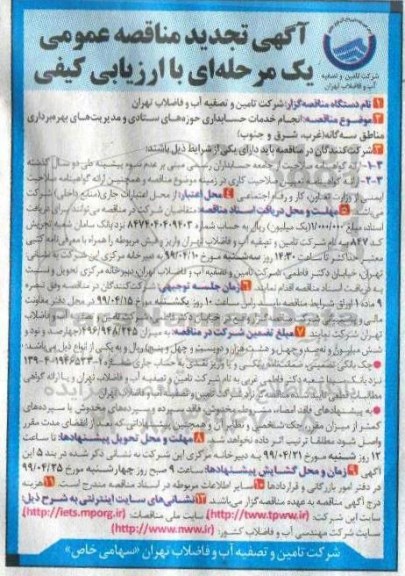 آگهی تجدید مناقصه عمومی
یک مرحله‌ای با ارزیابی کیفی
شرکت تامین و تصفیه
آب و فاضلاب تهران
1 نام دستگاه مناقصه‌گزار: شرکت تامین و تصفیه آب و فاضلاب تهران
2 موضوع مناقصه: انجام خدمات حسابداری حوزه‌های ستادی و مدیریت‌های بهره‌برداری
مناطق سه‌گانه (غرب، شرق و جنوب)
3 شرکت‌کنندگان در مناقصه باید دارای یکی از شرایط ذیل باشند:
جامعه حسابداران رسمی مبنی بر عدم سوء پیشینه طی دو سال گذشته
صلاحیت کاری در زمینه موضوع مناقصه و همچنین ارائه گواهینامه صلاحیت
ایمنی از وزارت تعاون، کار و رفاه اجتماعی 4 محل اعتبار: از محل اعتبارات جاری (منابع داخلی) شرکت
می‌باشد. 5 مهلت و محل دریافت اسناد مناقصه: متقاضیان شرکت در مناقصه می‌توانند برای دریافت
اسناد، مبلغ 1/000/000 (یک میلیون) ریال به حساب شماره نزد بانک سامان شعبه تجریش
کد 847 به نام شرکت تامین و تصفیه آب و فاضلاب تهران واریز و فیش مربوطه را همراه با معرفی‌نامه کتبی
معتبر، حداکثر تا ساعت 14:30 روز سه‌شنبه مورخ 99/04/10 به دبیرخانه مرکزی این شرکت به نشانی
تهران، خیابان دکتر فاطمی، شرکت تامین و تصفیه آب و فاضلاب تهران، دبیرخانه مرکزی تحویل و نسبت
به دریافت اسناد مناقصه اقدام نمایند. 6 زمان جلسه توجیهی: شرکت‌کنندگان در مناقصه وفق تبصره
ماده 10 اوراق شرایط مناقصه باید در ساعت 10 روز یکشنبه مورخ 99/04/15 در محل دفتر معاونت
تهران شرکت نمایند. 7 مبلغ تضمین شرکت در مناقصه: به میزان 496/948/245 (چهارصد و نود و
شش میلیون و نهصد و چهل و هشت هزار و دویست و چهل و پنج) ریال و به یکی از انواع ذیل می‌باشد:
چک بانکی تضمینی، ضمانت‌نامه بانکی و یا واریز نقدی به حساب جاری شماره
نزد بانک سینا شعبه دکتر فاطمی غربی به نام شرکت تامین و تصفیه آب و فاضلاب تهران و یا ارائه گواهی
به پیشنهادهای فاقد امضاء، مشروط، مخدوش و فاقد سپرده و سپرده‌های مخدوش یا سپرده‌های
کمتر از میزان مقرر، چک شخصی و نظایر آن و همچنین پیشنهاداتی که بعد از انقضای مدت مقرر
واصل شود مطلقا ترتیب اثر داده نخواهد شد. 8 مهلت و محل تحویل پیشنهادها: تا ساعت
12 روز شنبه مورخ 99/04/21 به دبیرخانه مرکزی این شرکت به نشانی ذکر شده در بند 5 این
آگهی. 9 زمان و محل گشایش پیشنهادها: ساعت 9 صبح روز چهارشنبه مورخ 99/04/25
در دفتر امور بازرگانی و قراردادها 10 سایر اطلاعات مربوطه در اسناد مناقصه مندرج است. 11 هزینه
درج آگهی مناقصه به عهده مناقصه‌گزار می‌باشد. 12 نشانی‌های سایت اینترنتی به شرح ذیل:
سایت این شرکت: (http://tww.tpww.ir)، سایت ملی مناقصات: (http://iets.mporg.ir)،
سایت شرکت مهندسی آب و فاضلاب کشور: (http://www.nww.ir)
شرکت تامین و تصفیه آب و فاضلاب تهران «سهامی خاص»